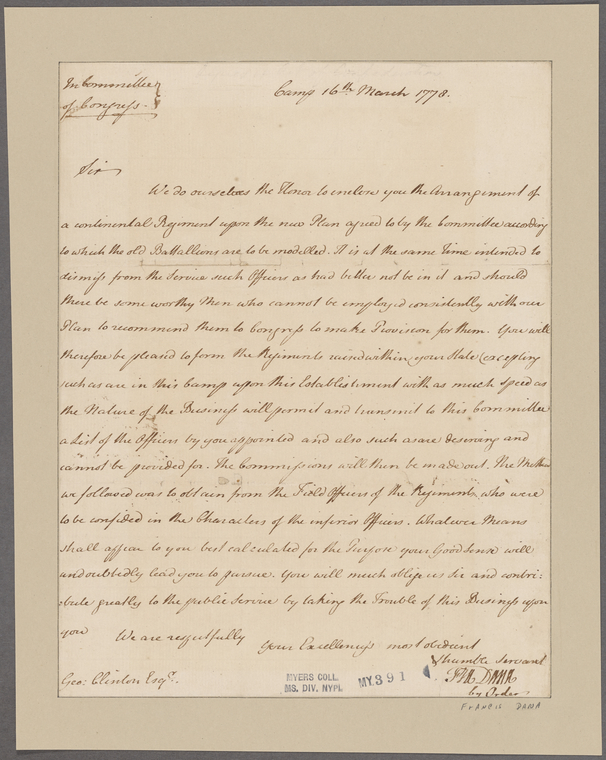 In Committee
of Congress.
Camp 16th March 1778.
Sir
We do ourselves the Honor to inclose you the Arrangement of
a continental Regiment upon the new Plan agreed to by the Committee according
to which the old Battallions are to be modelled. It is at the same Time intended to
dismiss from the Service such Officers as had better not be in it and should
there be some worthy Men who cannot be employed consistently with our
Plan to recommend them to Congress to make Provision for them. You will
therefore be pleased to form the Regiments raised within your State (excepting
such as are in this Camp upon this Establishment with as much Speed as
the Nature of the Business will permit and transmit to this Committee
a List of the Officers by you appointed and also such as are deserving and
cannot be provided for. The Commissions will then be made out. The Method
we followed was to obtain from the Field Officers of the Regiments, who were
to be confided in the Characters of the inferior Officers. Whatever Means
shall appear to you best calculated for the Purpose your Good Sense will
undoubtedly lead you to pursue. You will much oblige us Sir and contri:
:bute greatly to the public Service by taking the Trouble of this Business upon
you We are respectfully
your Excellency's most obedient
& humble Servant
FRA. DANA
by Order
Geo: Clinton Esqr.
MYERS COLL.
MS. DIV. NYPL
MY. 391
FRANCIS DANA